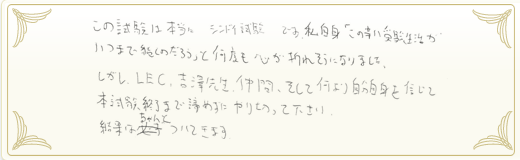 この試験は本当に シンドイ試験 です。私自身「この辛い受験生活が
いつまで続くのだろう」と何度も心が折れそうになりました。
しかし、LEC、吉澤先生、仲間、そして何より自分自身を信じて
本試験終了まで諦めずにやり切って下さい。
結果はちゃんとついてきます